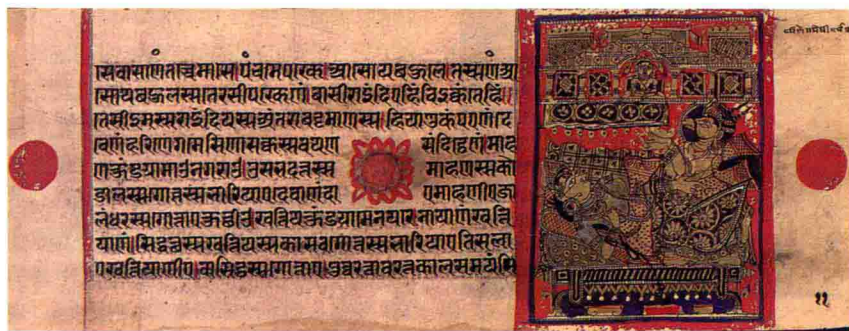 सेवासाणंतच्चेमासे पंचमेपरके आसोयबहुले तस्सणंआ
सोयबहुलस्सतेरसीपरकेणं बासीराइंदिएहिं विइक्कंतेहिं
तेसीइमस्सराइंदियस्सअंतरावट्टमाणस्स हियाणुकंपएणंदे
वेणंहरिणेगमेसिणासक्कस्सवयण संदिट्ठेणं माह
णकुंडग्गामाउनगराउ उसभदत्तस्स माहणस्सको
डालसगोत्तस्सभारियाएदेवाणंदा एमाहणीएजा
लंधरसगोत्ताएकुच्छीउ खत्तियकुंडग्गामेनयरे नायाणंखत्ति
याणं सिद्धत्थस्सखत्तियस्सकासवगोत्तस्सभारियाएतिसला
एखत्तियाणीए वासिट्ठसगोत्ताए पुव्वरत्तावरत्तकालसमयंसि
११